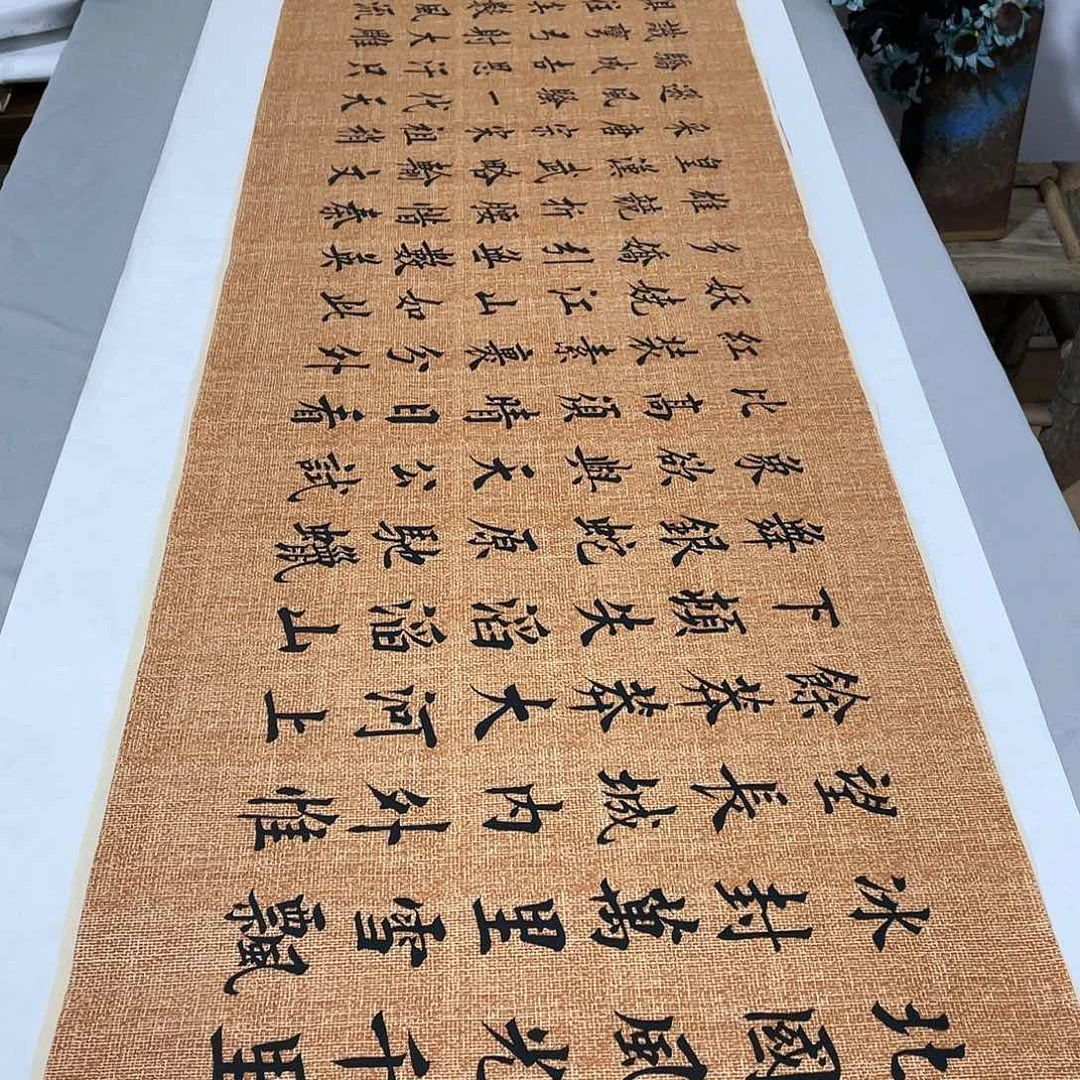 北國風光千里
冰封萬里雪飄
望長城內外惟
餘莽莽大河上
下頓失滔滔山
舞銀蛇原馳蠟
象欲與天公試
比高須晴日看
紅裝素裹分外
妖嬈江山如此
多嬌引無數英
雄競折腰惜秦
皇漢武略輸文
采唐宗宋祖稍
遜風騷一代天
驕成吉思汗只
識彎弓射大雕
俱往矣數風流